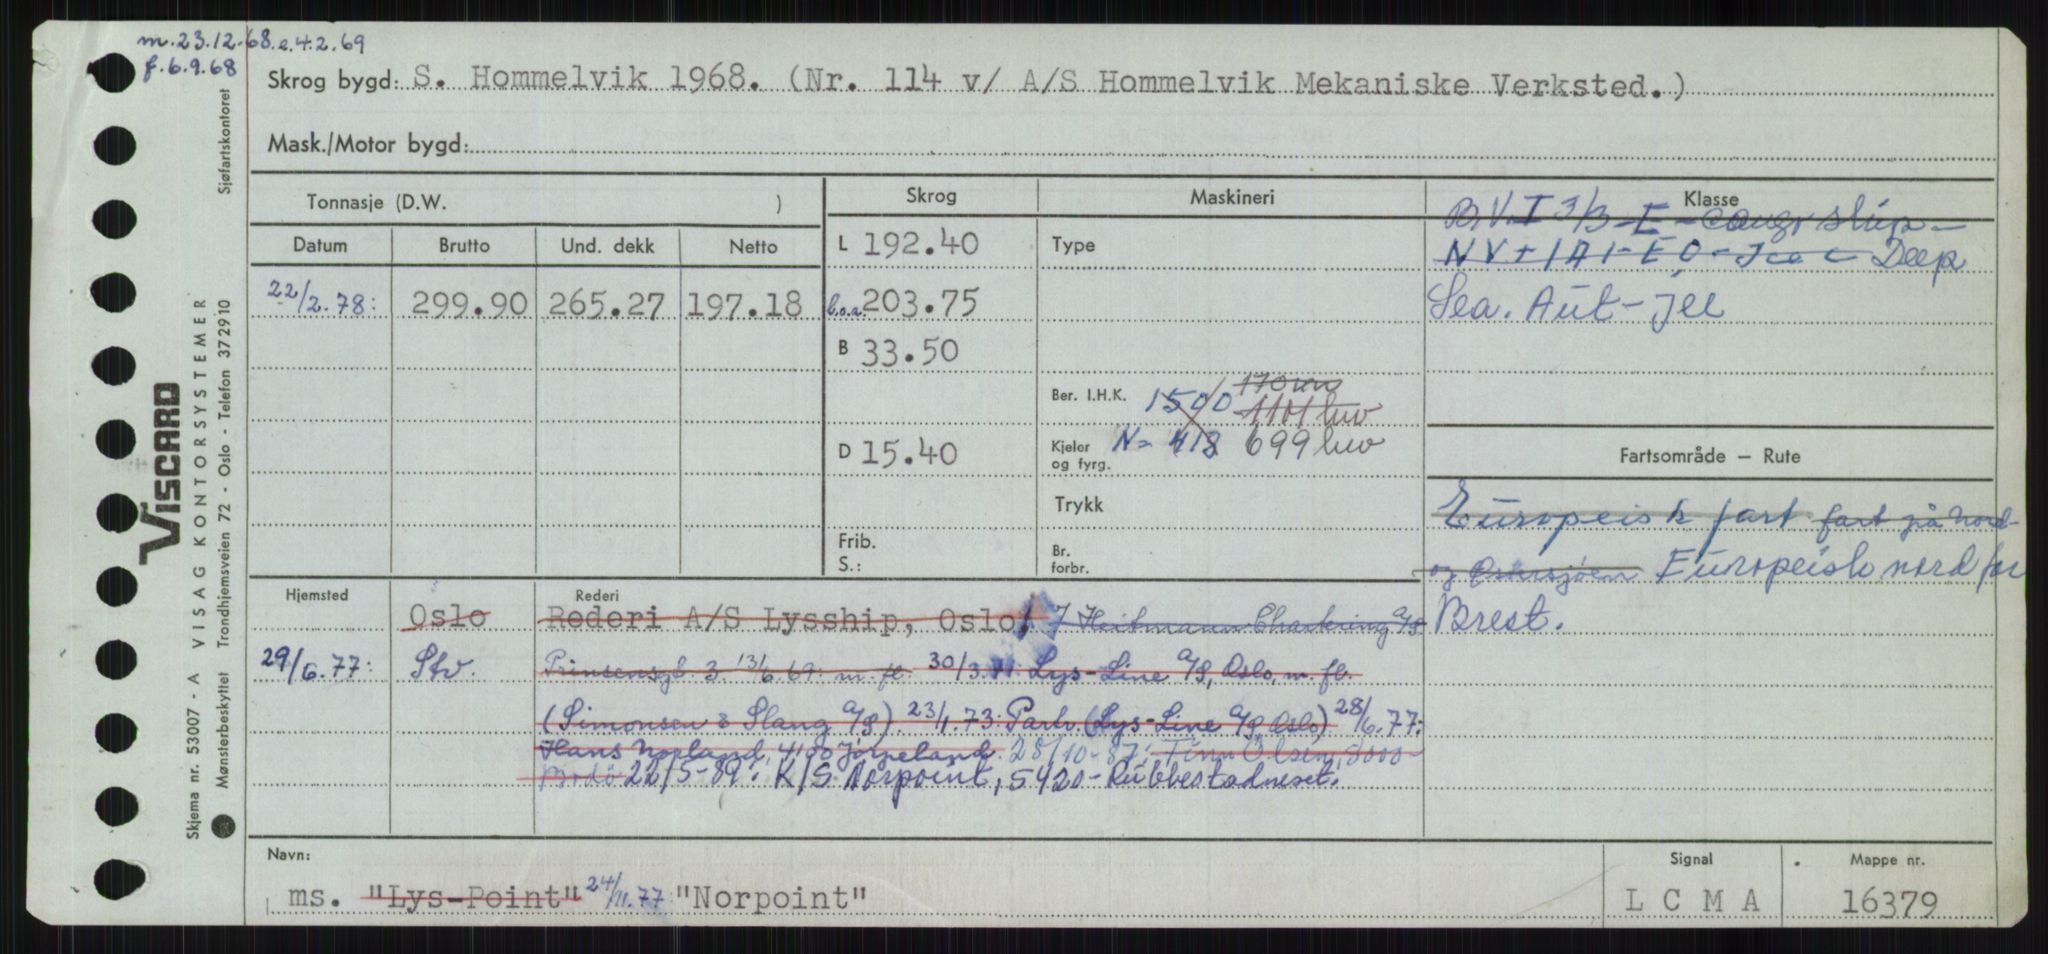 m.23.12.68.e.4.2.69
f.6.9.68
Skrog bygd: S. Hommelvik 1968. (Nr. 114 v/ A/S Hommelvik Mekaniske Verksted.)
Mask./Motor bygd:
Tonnasje (D.W. )
Skrog
Maskineri
Klasse
Datum Brutto Und. dekk Netto
22/2.78: 299.90 265.27 197.18
L 192.40
l.o.a 203.75
B 33.50
D 15.40
Frib.
S.:
Type
Ber. I.H.K. 1500 1101 hw
Kjeler og fyrg. N= 418 699 hw
Trykk
Br. forbr.
BV I 3/3-E-
NV+1A1-EO-Ice C Deep
Sea.
Fartsområde — Rute
Europeisk fart fart på Nord-
og Østersjøen Europeisk nord for
Brest.
Hjemsted
Rederi
Oslo Rederi A/S Lysship, Oslo. Heitmann Chartering A/S
29/6.77: Stv. Prinsensgt. 3 13/6.69. m.fl. 30/3. Lys-Line A/S, Oslo, m. fl.
(Simonsen & Slang A/S) 23/1.73: Partr. (Lys-Line A/S, Oslo) 28/6.77:
Hans Norland, 4100 Jørpeland. 28/10-87: Finn Olsen, 8000-
Bodø 22/5-89: K/S Norpoint, 5420-Rubbestadneset.
Navn:
ms. "Lys-Point" 24/11.77 "Norpoint"
Signal
L C M A
Mappe nr.
16379
VISCARD
Skjema nr. 53007 - A VISAG KONTORSYSTEMER Sjøfartskontoret
Mønsterbeskyttet Trondhjemsveien 72 - Oslo - Telefon 37 29 10